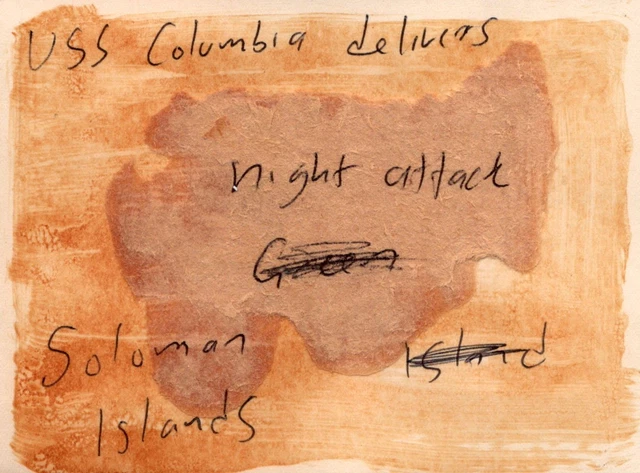 USS Columbia delivers
night attack
Green
Soloman
Island
Islands